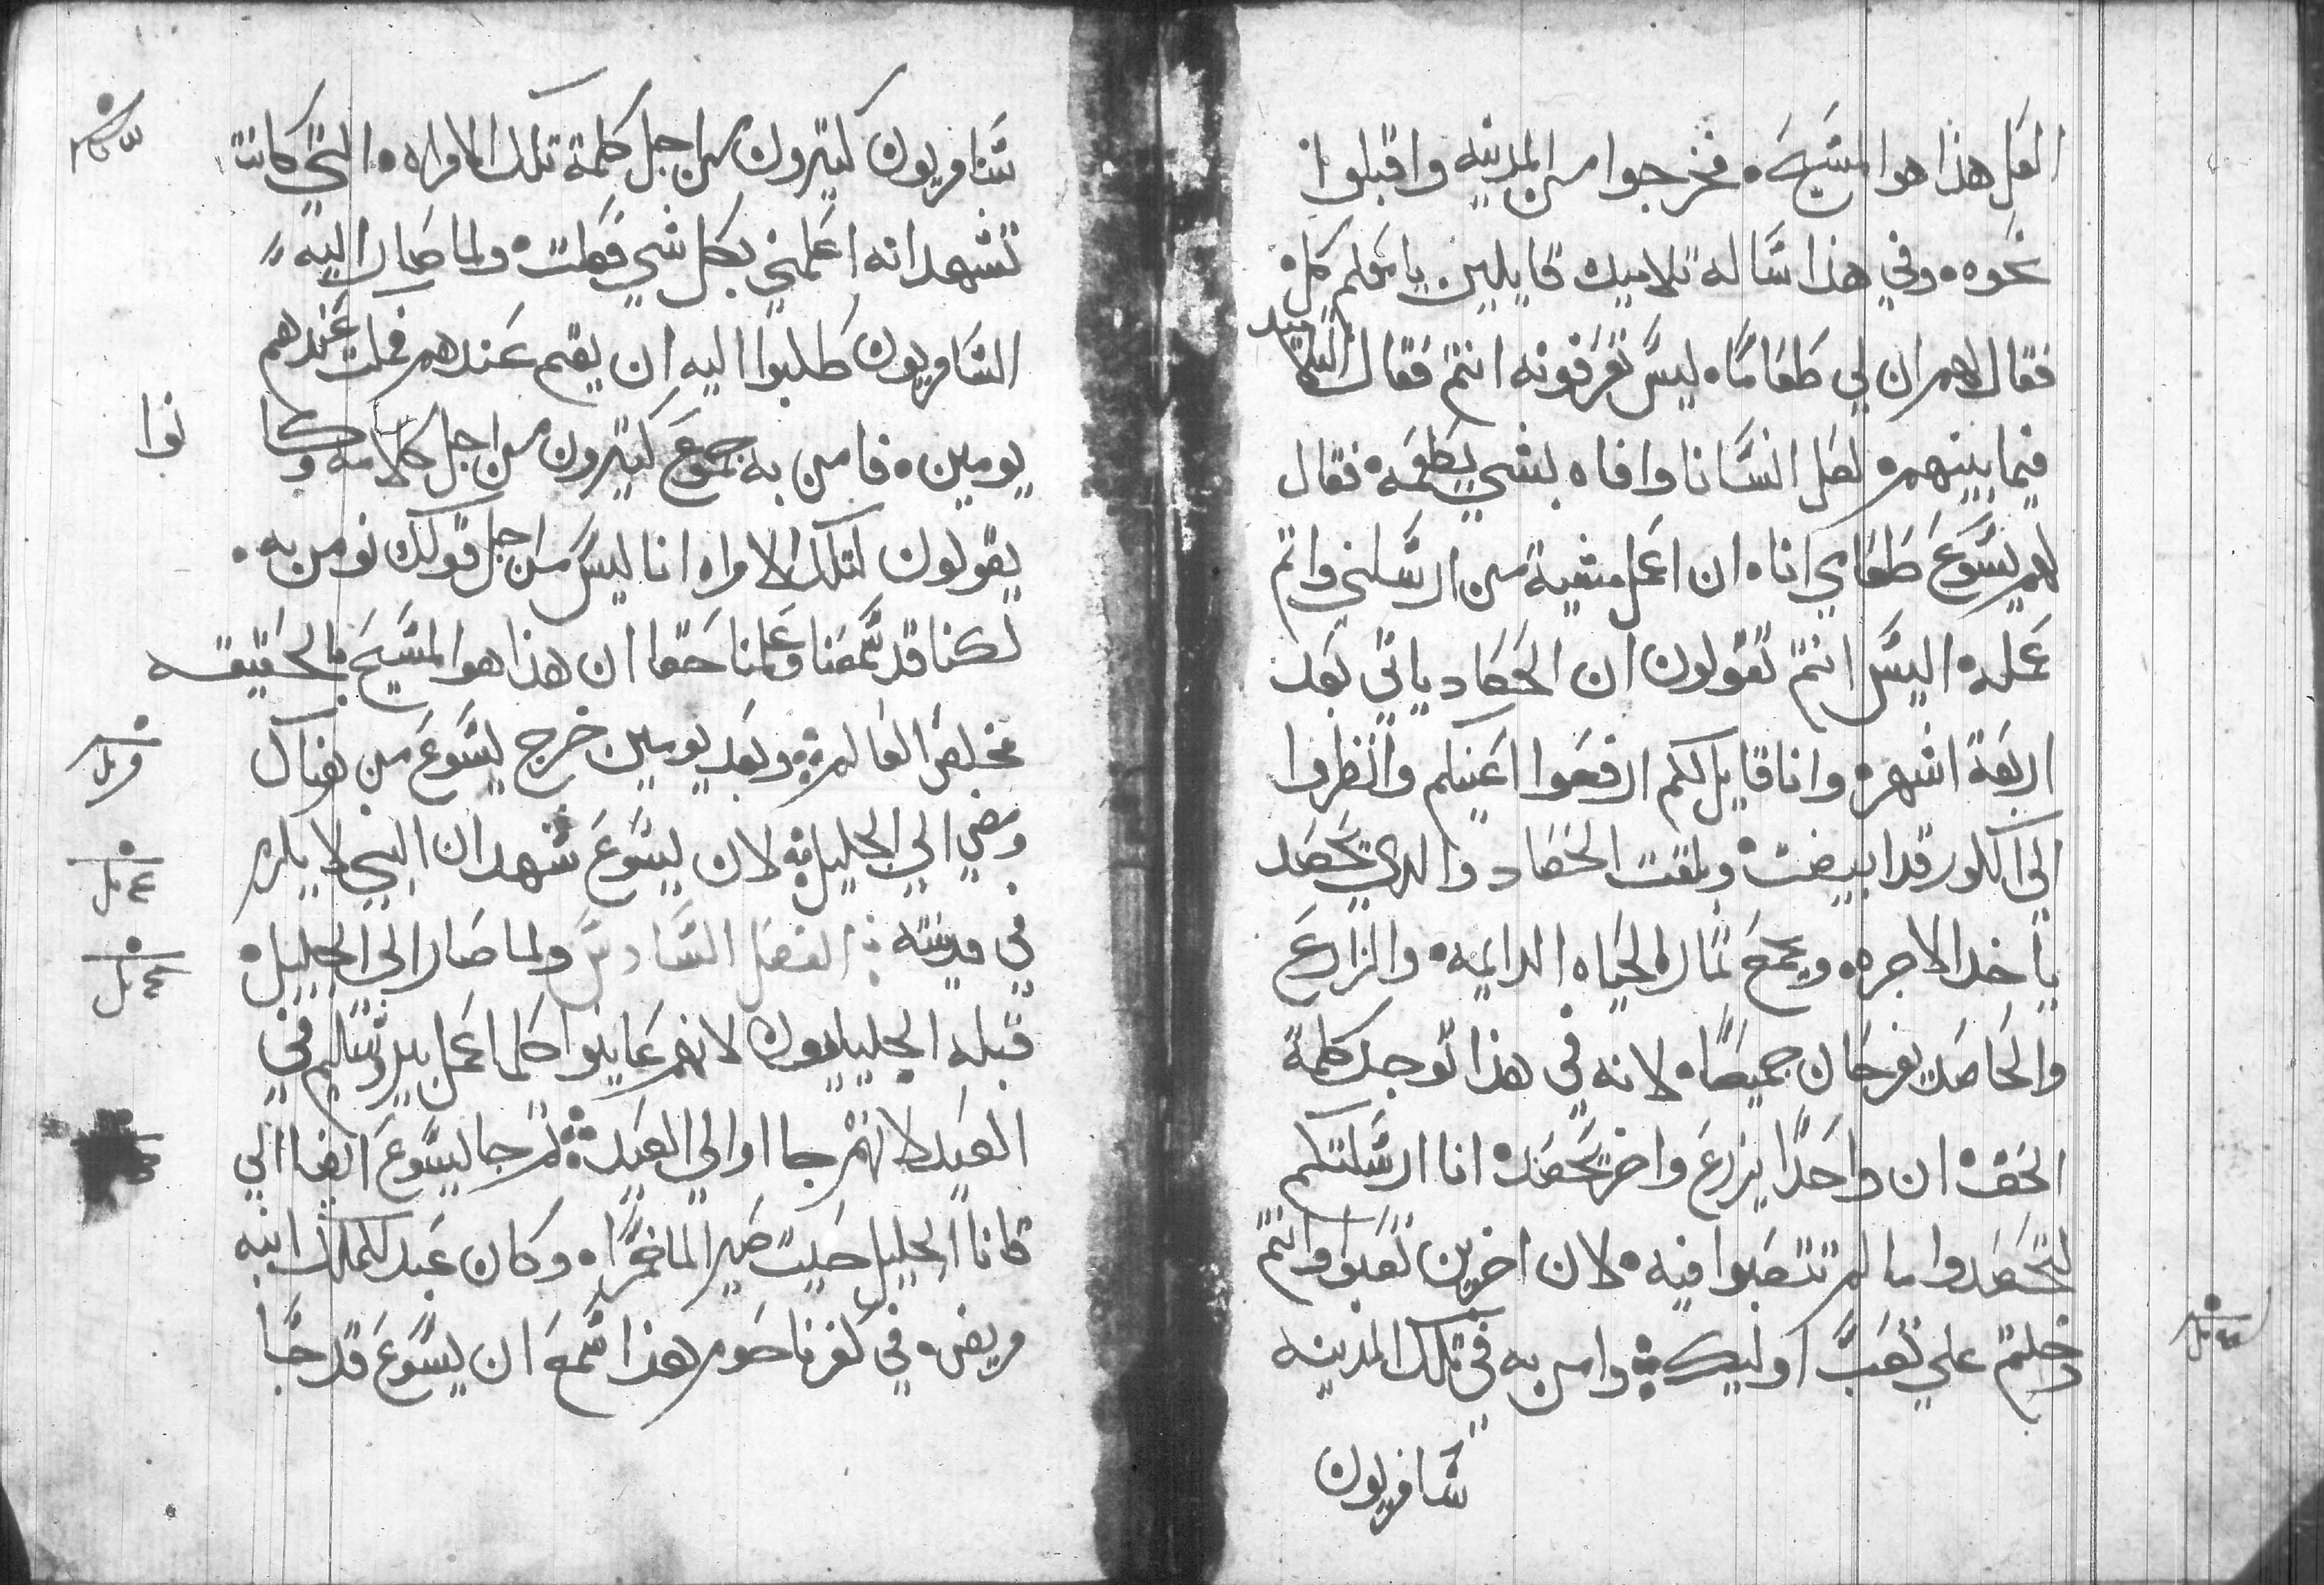 العل هذا هوا المسيح. فخرجوا من المدينه واقبلوا
نحوه. وفي هذا ساله تلاميده قايلين يا معلم كل.
فقال لهم ان لي طعاما. ليس تعرفونه انتم فقال التلاميد
فيما بينهم. لعل انسانا وافاه بشي يطعمه. فقال
لهم يسوع طعامي انا. ان اعمل مشية من ارسلني واتم
عمله. اليس انتم تقولون ان الحصاد ياتي بعد
اربعة اشهر. وانا قايل لكم ارفعوا اعينكم وانظروا
الى الكور قد ابيضت. وبلغت الحصاد والدي يحصد
ياخد الاجره. ويجمع ثمار الحياه الدايمه. والزارع
والحاصد يفرحان جميعا. لانه في هذا توجد كلمة
الحق. ان واحدا يزرع واخر يحصد. انا ارسلتكم
لتحصدوا ما لم تتعبوا فيه. لان اخرين تعبوا وانتم
دخلتم علي تعب اوليك ܀ وامن به في تلك المدينه
سامريون
سامريون كتيرون من اجل كلمة تلك الامراه. التي كانت
تشهد انه اعلمني بكل شي فعلت. ولما صار اليه
السامريون طلبوا اليه ان يقيم عندهم فمكت عندهم
يومين. فامن به جموع كتيرون من اجل كلامه وكا
نوا
يقولون لتلك الامراه انا ليس من اجل قولك نومن به.
لكنا قد سمعنا وعلمنا حقا ان هذا هوا المسيح بالحقيقه
مخلص العالم ܀ وبعد يومين خرج يسوع من هناك
ومضي الي الجليل ܀ لان يسوع شهد ان النبي لا يكرم
في مدينته ܀ الفصل السادس ولما صار الى الجليل.
قبله الجليليون لانهم عاينوا كلما عمل بيروشاليم في
العيد لانهم جااوا الي العيد ܀ ثم جا يسوع ايضا الي
قانا الجليل حيت صير الما خمرا. وكان عبد للملك ابنه
مريض. في كفرناحوم هذا سمع ان يسوع قد جا